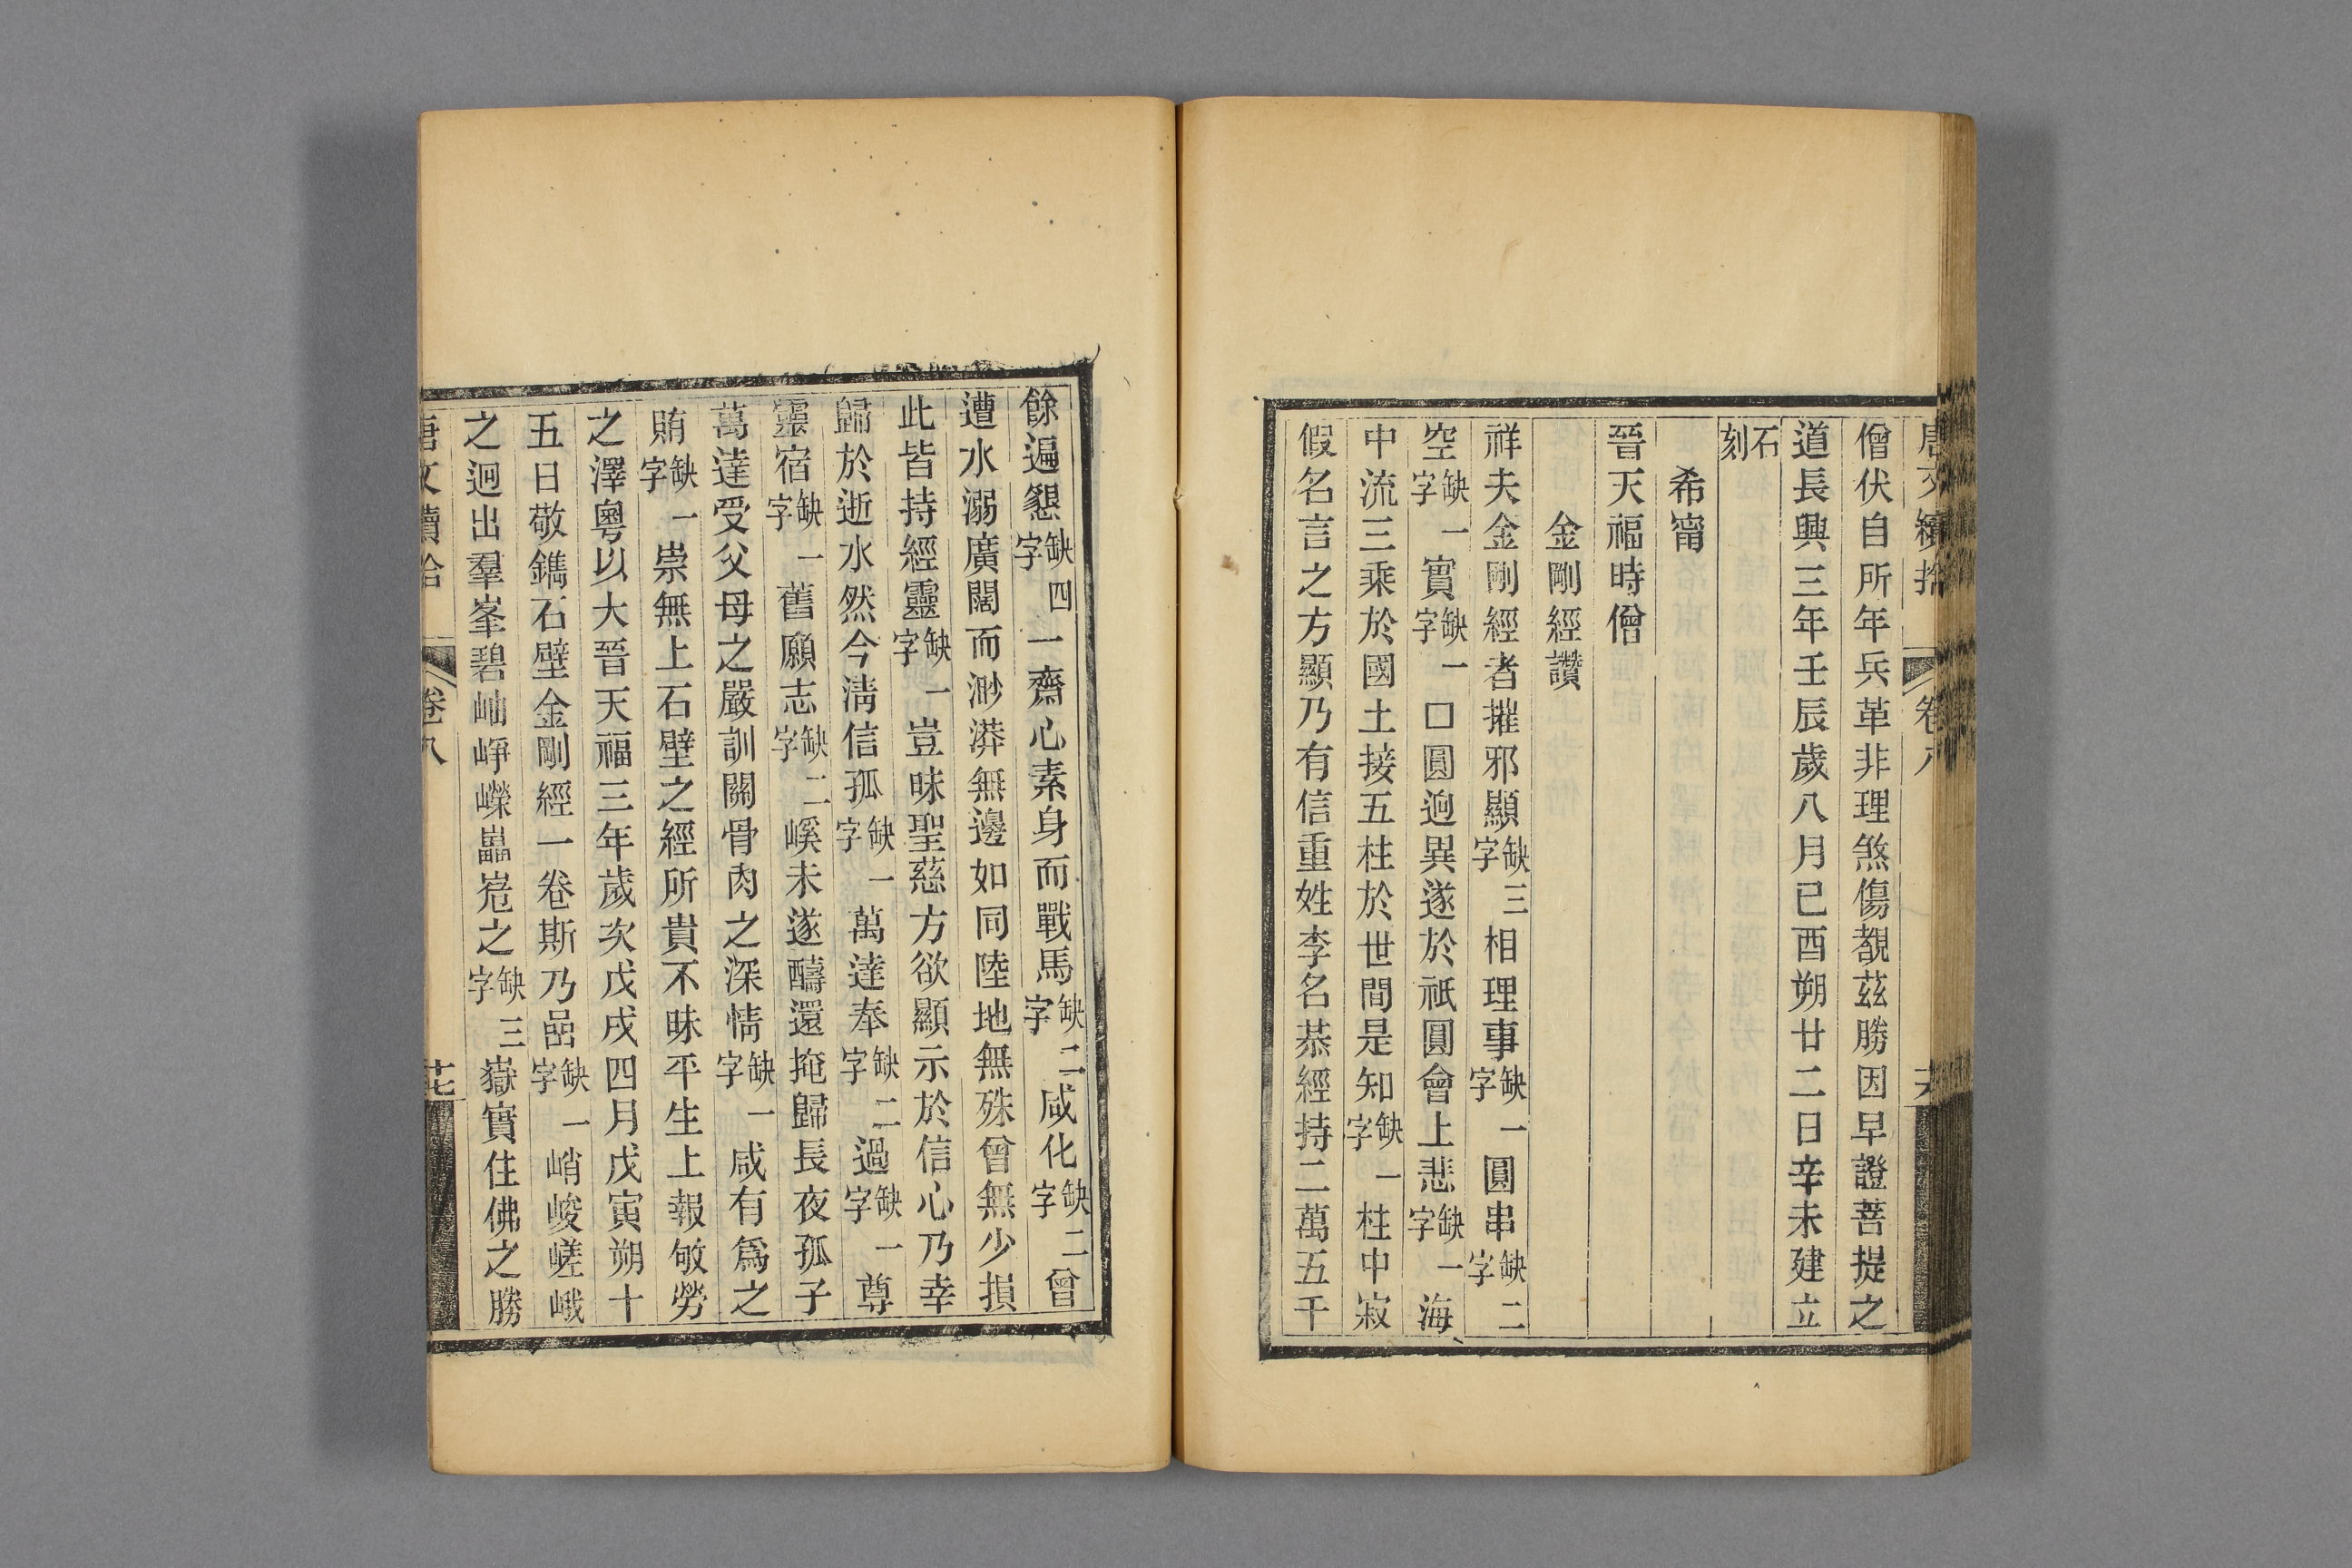 唐文續拾 卷八
僧伏自所年兵革非理煞傷覩茲勝因早證菩提之
道長興三年壬辰歲八月已酉朔廿二日辛未建立
石刻
希甯
晉天福時僧
金剛經讚
祥夫金剛經者摧邪顯缺三字相理事缺一字圓串缺二字
空缺一字實缺一字口圓迥異遂於祇圓會上悲缺一字海
中流三乘於國土接五柱於世間是知缺一字柱中寂
假名言之方顯乃有信重姓李名恭經持二萬五千
餘遍懇缺四字一齋心素身而戰馬缺二字咸化缺二字曾
遭水溺廣闊而渺漭無邊如同陸地無殊曾無少損
此皆持經靈缺一字豈昧聖慈方欲顯示於信心乃幸
歸於逝水然今淸信孤缺一字萬達奉缺二字過缺一字尊
靈宿缺一字舊願志缺二字嵠未遂醻還掩歸長夜孤子
萬達受父母之嚴訓關骨肉之深情缺一字咸有爲之
賄缺一字崇無上石壁之經所貴不昧平生上報敏勞
之澤粵以大晉天福三年歲次戊戌四月戊寅朔十
五日敬鐫石壁金剛經一卷斯乃嵒缺一字峭峻嵯峨
之迥出羣峯碧岫崢嶸巋嵬之缺三字嶽實住佛之勝
唐文續拾 卷八